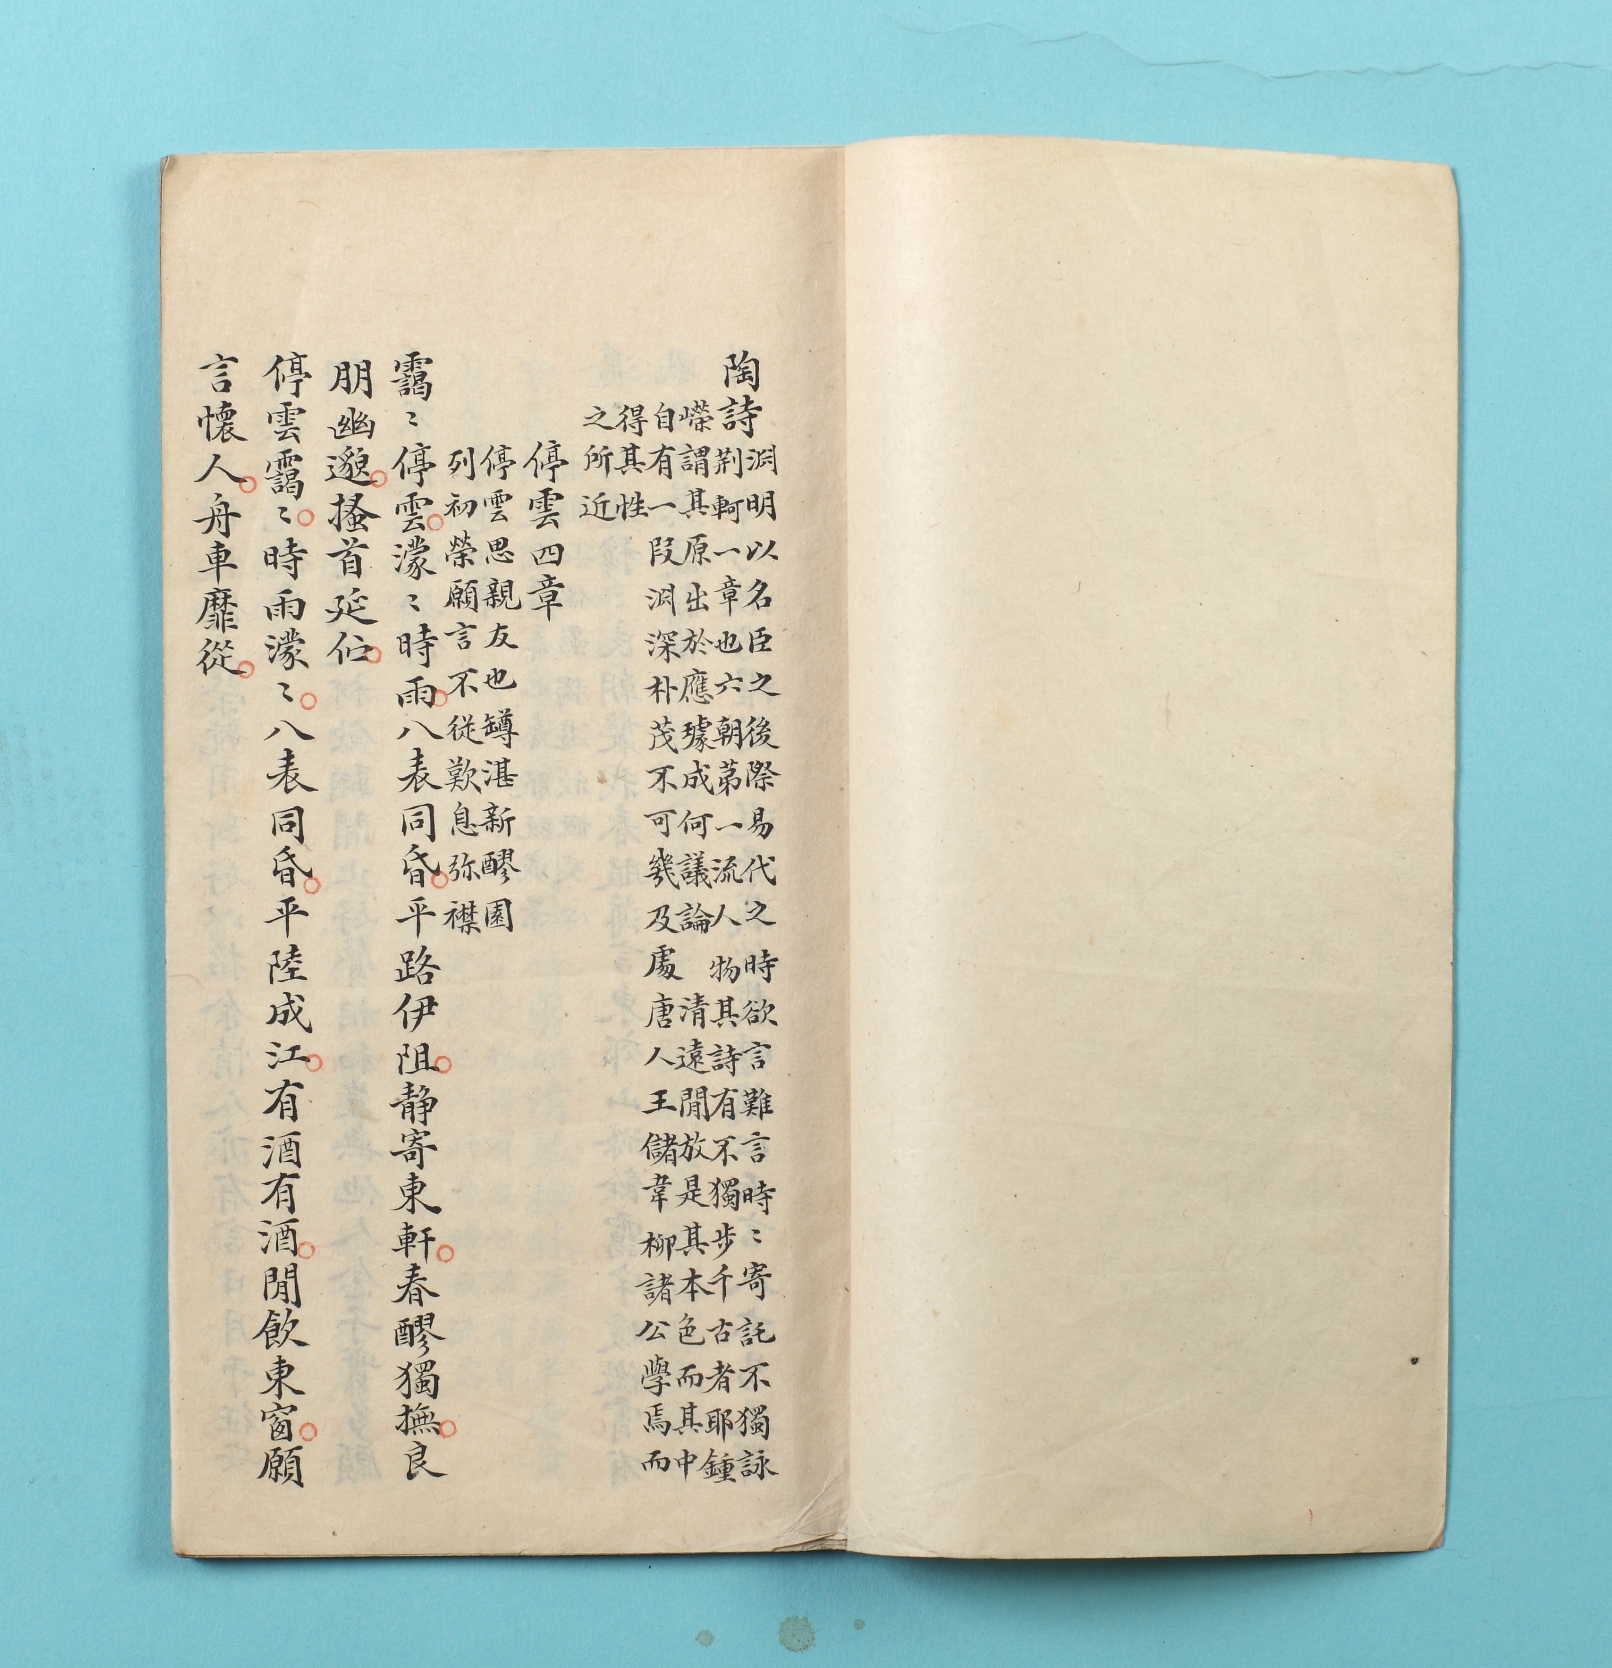 陶詩
淵明以名臣之後際易代之時欲言難言時〻寄託不獨詠
荆軻一章也六朝苐一流人物其詩有不獨步千古者耶鍾
嶸謂其原出於應璩成何議論清遠閒放是其本色而其中
自有一段淵深朴茂不可幾及處唐人王儲韋柳諸公學焉而
得其性
之所近
停雲四章
停雲思親友也罇湛新醪園
列初榮願言不從歎息弥襟
靄〻停雲濛〻時雨八表同昏平路伊阻静寄東軒春醪獨撫良
朋幽邈搔首延佇
停雲靄〻時雨濛〻八表同昏平陸成江有酒有酒閒飲東窗願
言懷人舟車靡從